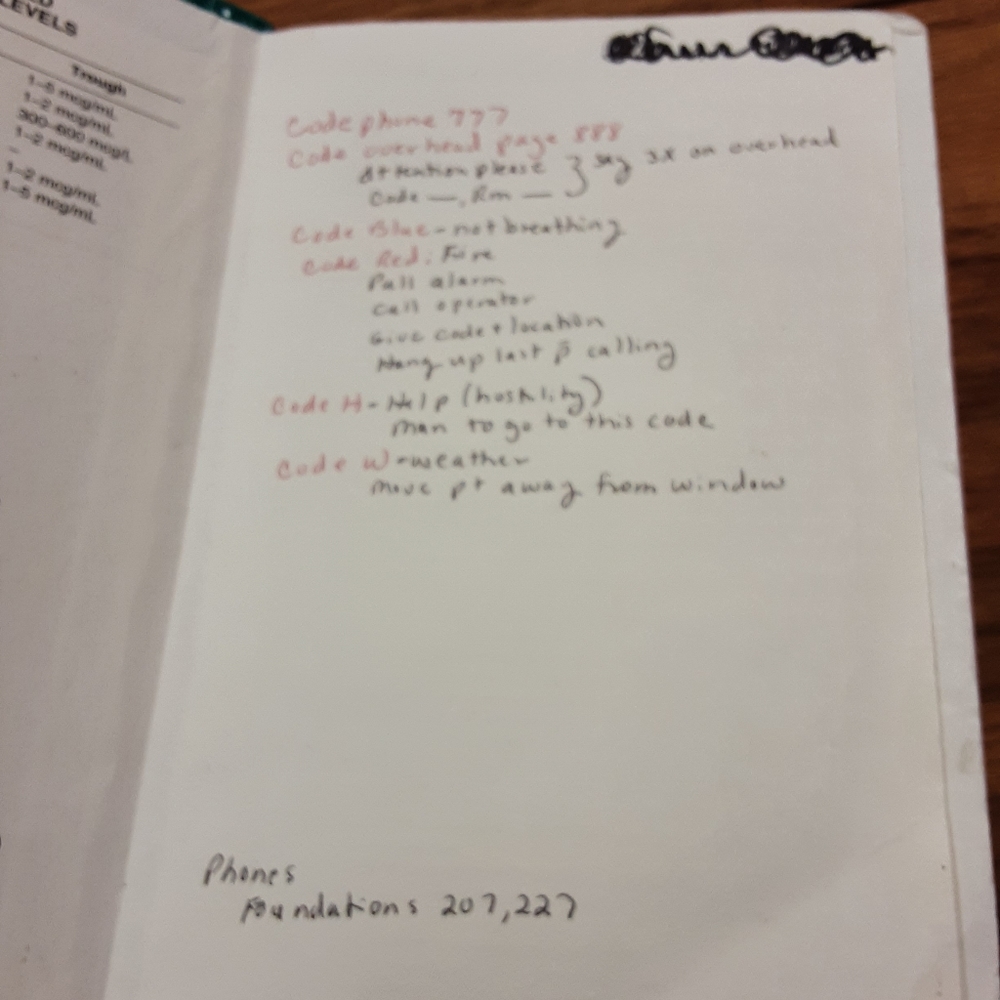 LEVELS
Trough
1–5 mcg/mL
1–2 mcg/mL
300–600 mcg/L
1–2 mcg/mL
–
1–2 mcg/mL
1–5 mcg/mL
Code phone 777
Code overhead page 888
Attention please } say 3x on overhead
Code —, Rm —
Code Blue - not breathing
Code Red: Fire
Pull alarm
Call operator
Give code + location
Hang up last p̄ calling
Code H - Help (hostility)
Man to go to this code
Code W - weather
Move pt away from window
Phones
Foundations 207, 227